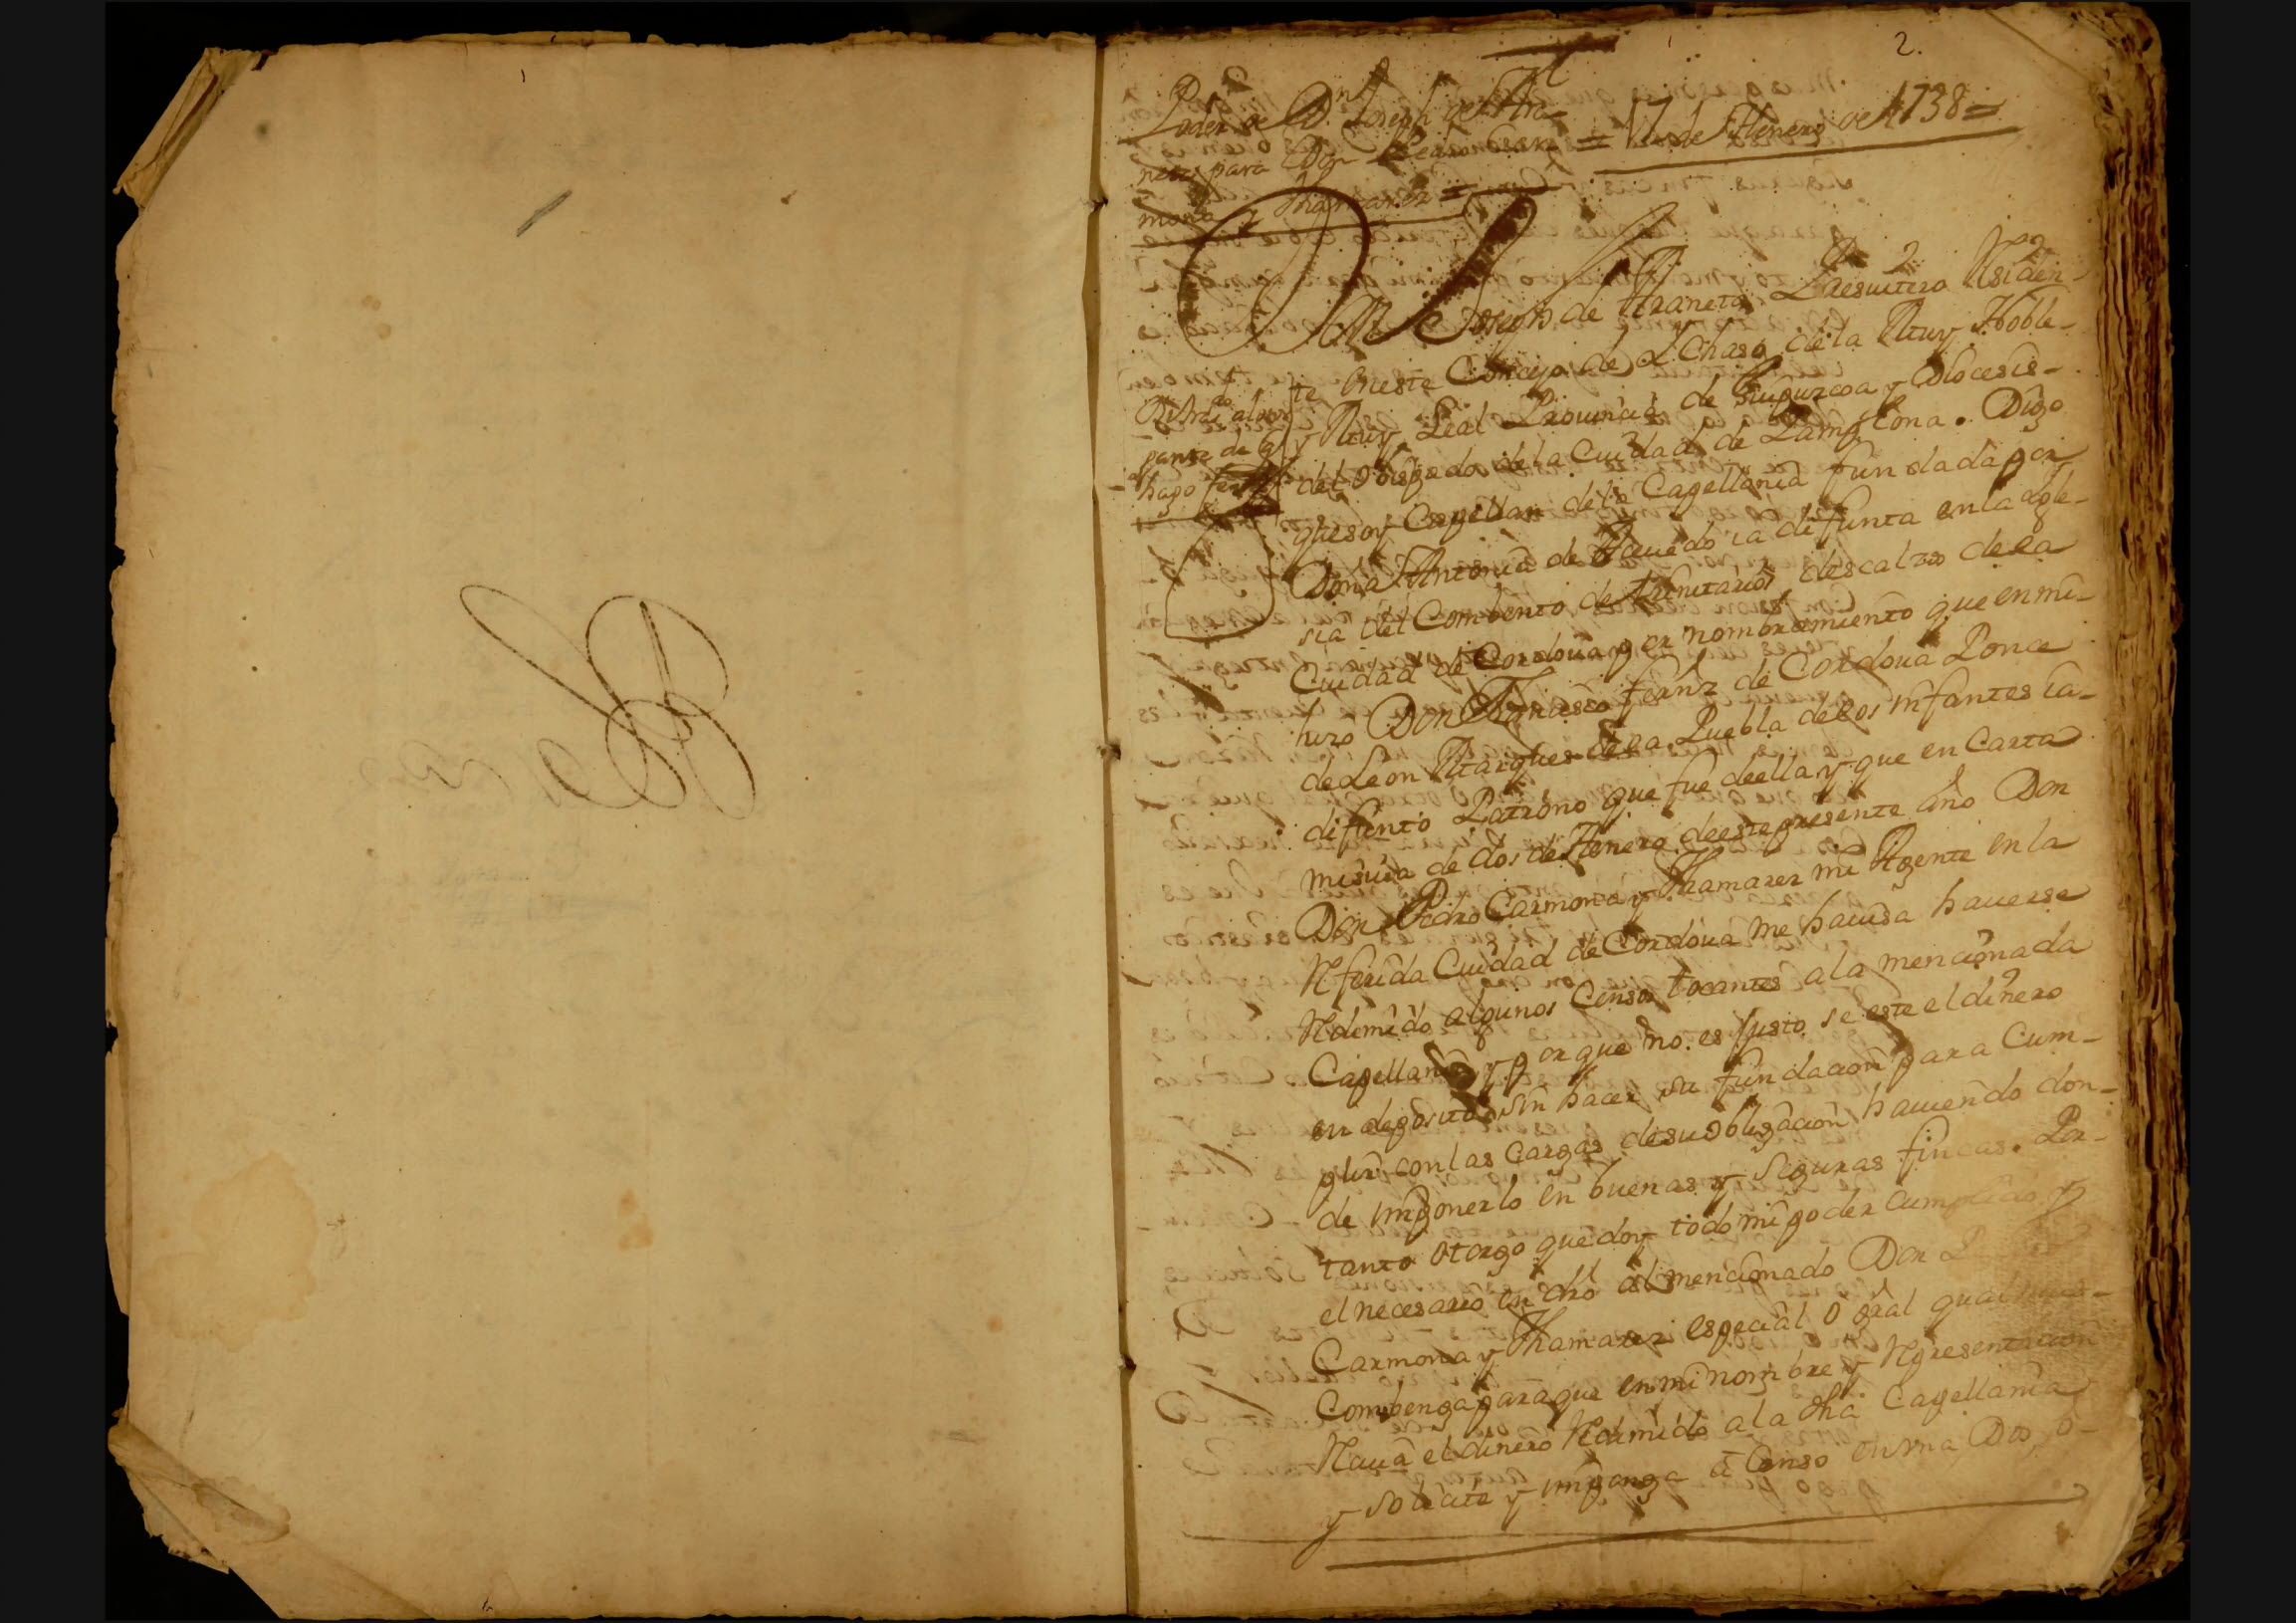 2.
Poder de Dn. Joseph de Ara-
neta para Don Pedro Car- = de Henero de 1738 =
mona y Thamarez =
Don Joseph de Araneta Presuitero Residen-
te en este Concejo de la Muy Noble-
y Muy Leal Prouincia de Guipuzcoa y Diocesis-
del Obispado de la Ciudad de Pamplona. Digo
que soy Capellan de la Capellania fundada por
Doña Antonia de ia difunta en la Igle-
sia del Combento de trinitarios descalzos de la
Ciudad de Cordoua por nombramiento que en mi-
hizo Don Francisco fernz de Cordoua Ponce
de Leon Marques de la Puebla de los infantes ia-
difunto Patrono que fue de ella y que en Carta
misiua de dos de Henero de este presente año Don
Don Pedro Carmona y Thamarez mi Agente en la
Referida Ciudad de Cordoua me hauisa hauerse
Redimido algunos Censos tocantes a la mencionada
Capellania y porque no es Justo se este el dinero
en deposito sin hacer su fundacion para Cum-
plir con las Cargas de su obligacion hauiendo don-
de imponerlo en buenas y seguras fincas. Por-
tanto otorgo que doy todo mi poder cumplido y
el necesario en dro al mencionado Don
Carmona y Thamarez especial o gral qual mas-
Combenga para que en mi nombre y Representacion
Reciua el dinero Redimido a la dha Capellania
y solicite y imponga a Censo en vna Dos o-